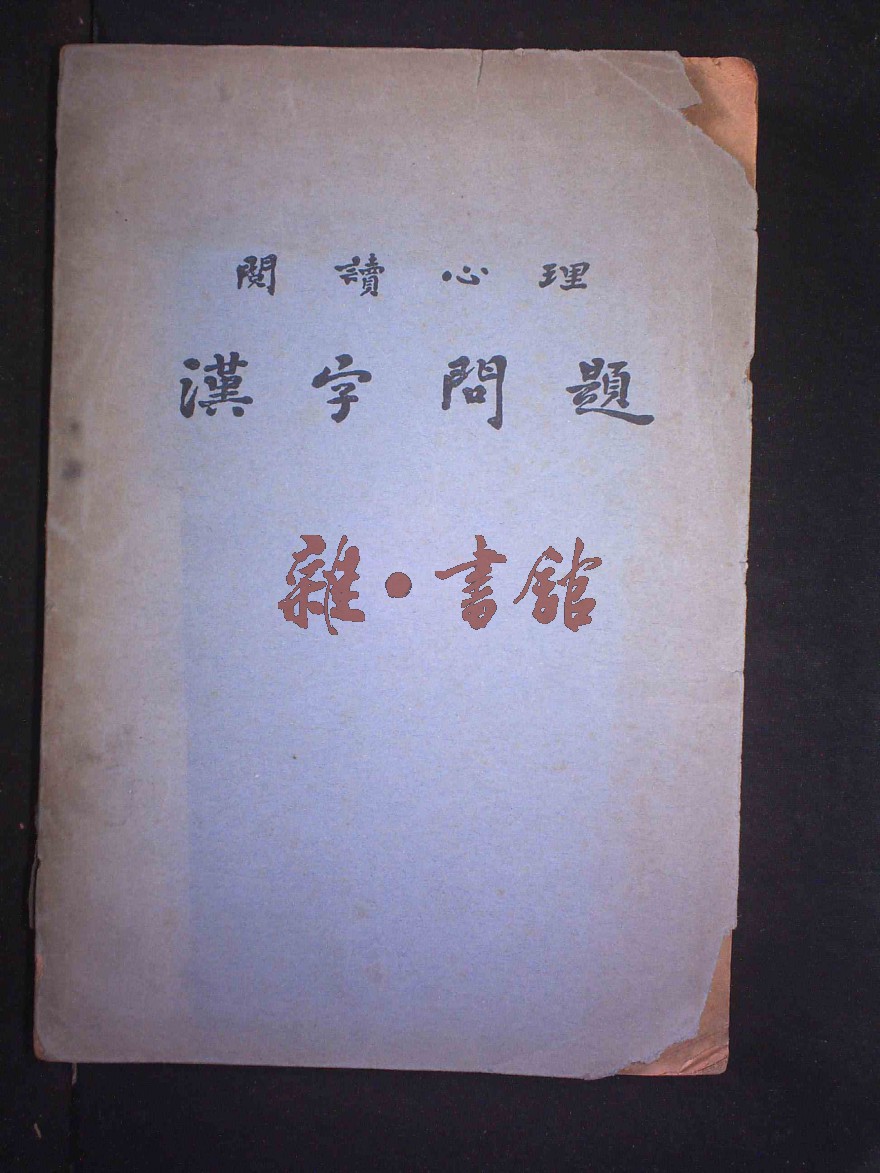 閱讀心理
漢字問題
雜·書館